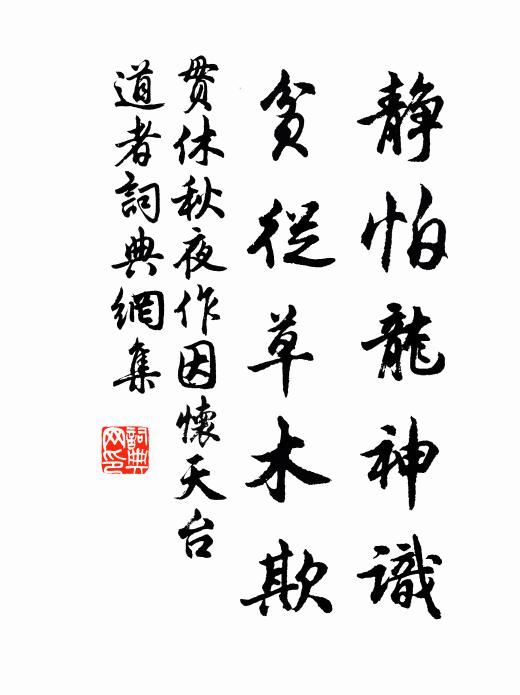 靜怕龍神識
貧從草木欺
貫休秋夜作因懷天台
道者詞典網集
詞典
网印